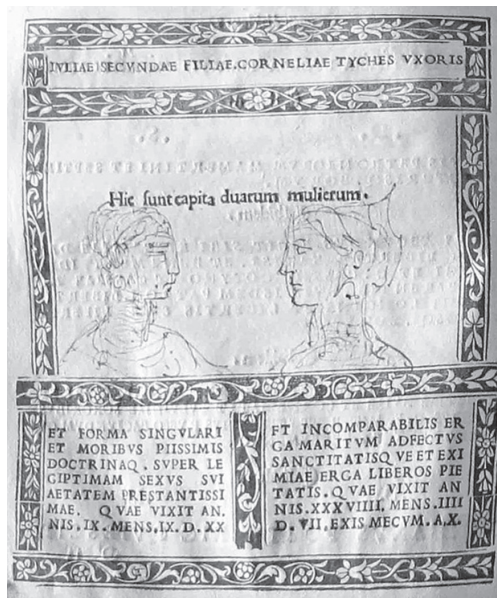 IVLIAE SECVNDAE FILIAE. CORNELIAE TYCHES VXORIS
Hic sunt capita duarum mulierum.
ET FORMA SINGVLARI
ET MORIBVS PIISSIMIS
DOCTRINAQ. SVPER LE
GIPTIMAM SEXVS SVI
AETATEM PRESTANTISSI
MAE. QVAE VIXIT AN.
NIS. IX. MENS. IX. D. XX
ET INCOMPARABILIS ER
GA MARITVM ADFECTVS
SANCTITATISQVE ET EXI
MIAE ERGA LIBEROS PIE
TATIS. QVAE VIXIT AN
NIS. XXXVIIII. MENS. IIII
D. VII. EXIS MECVM. A.X.